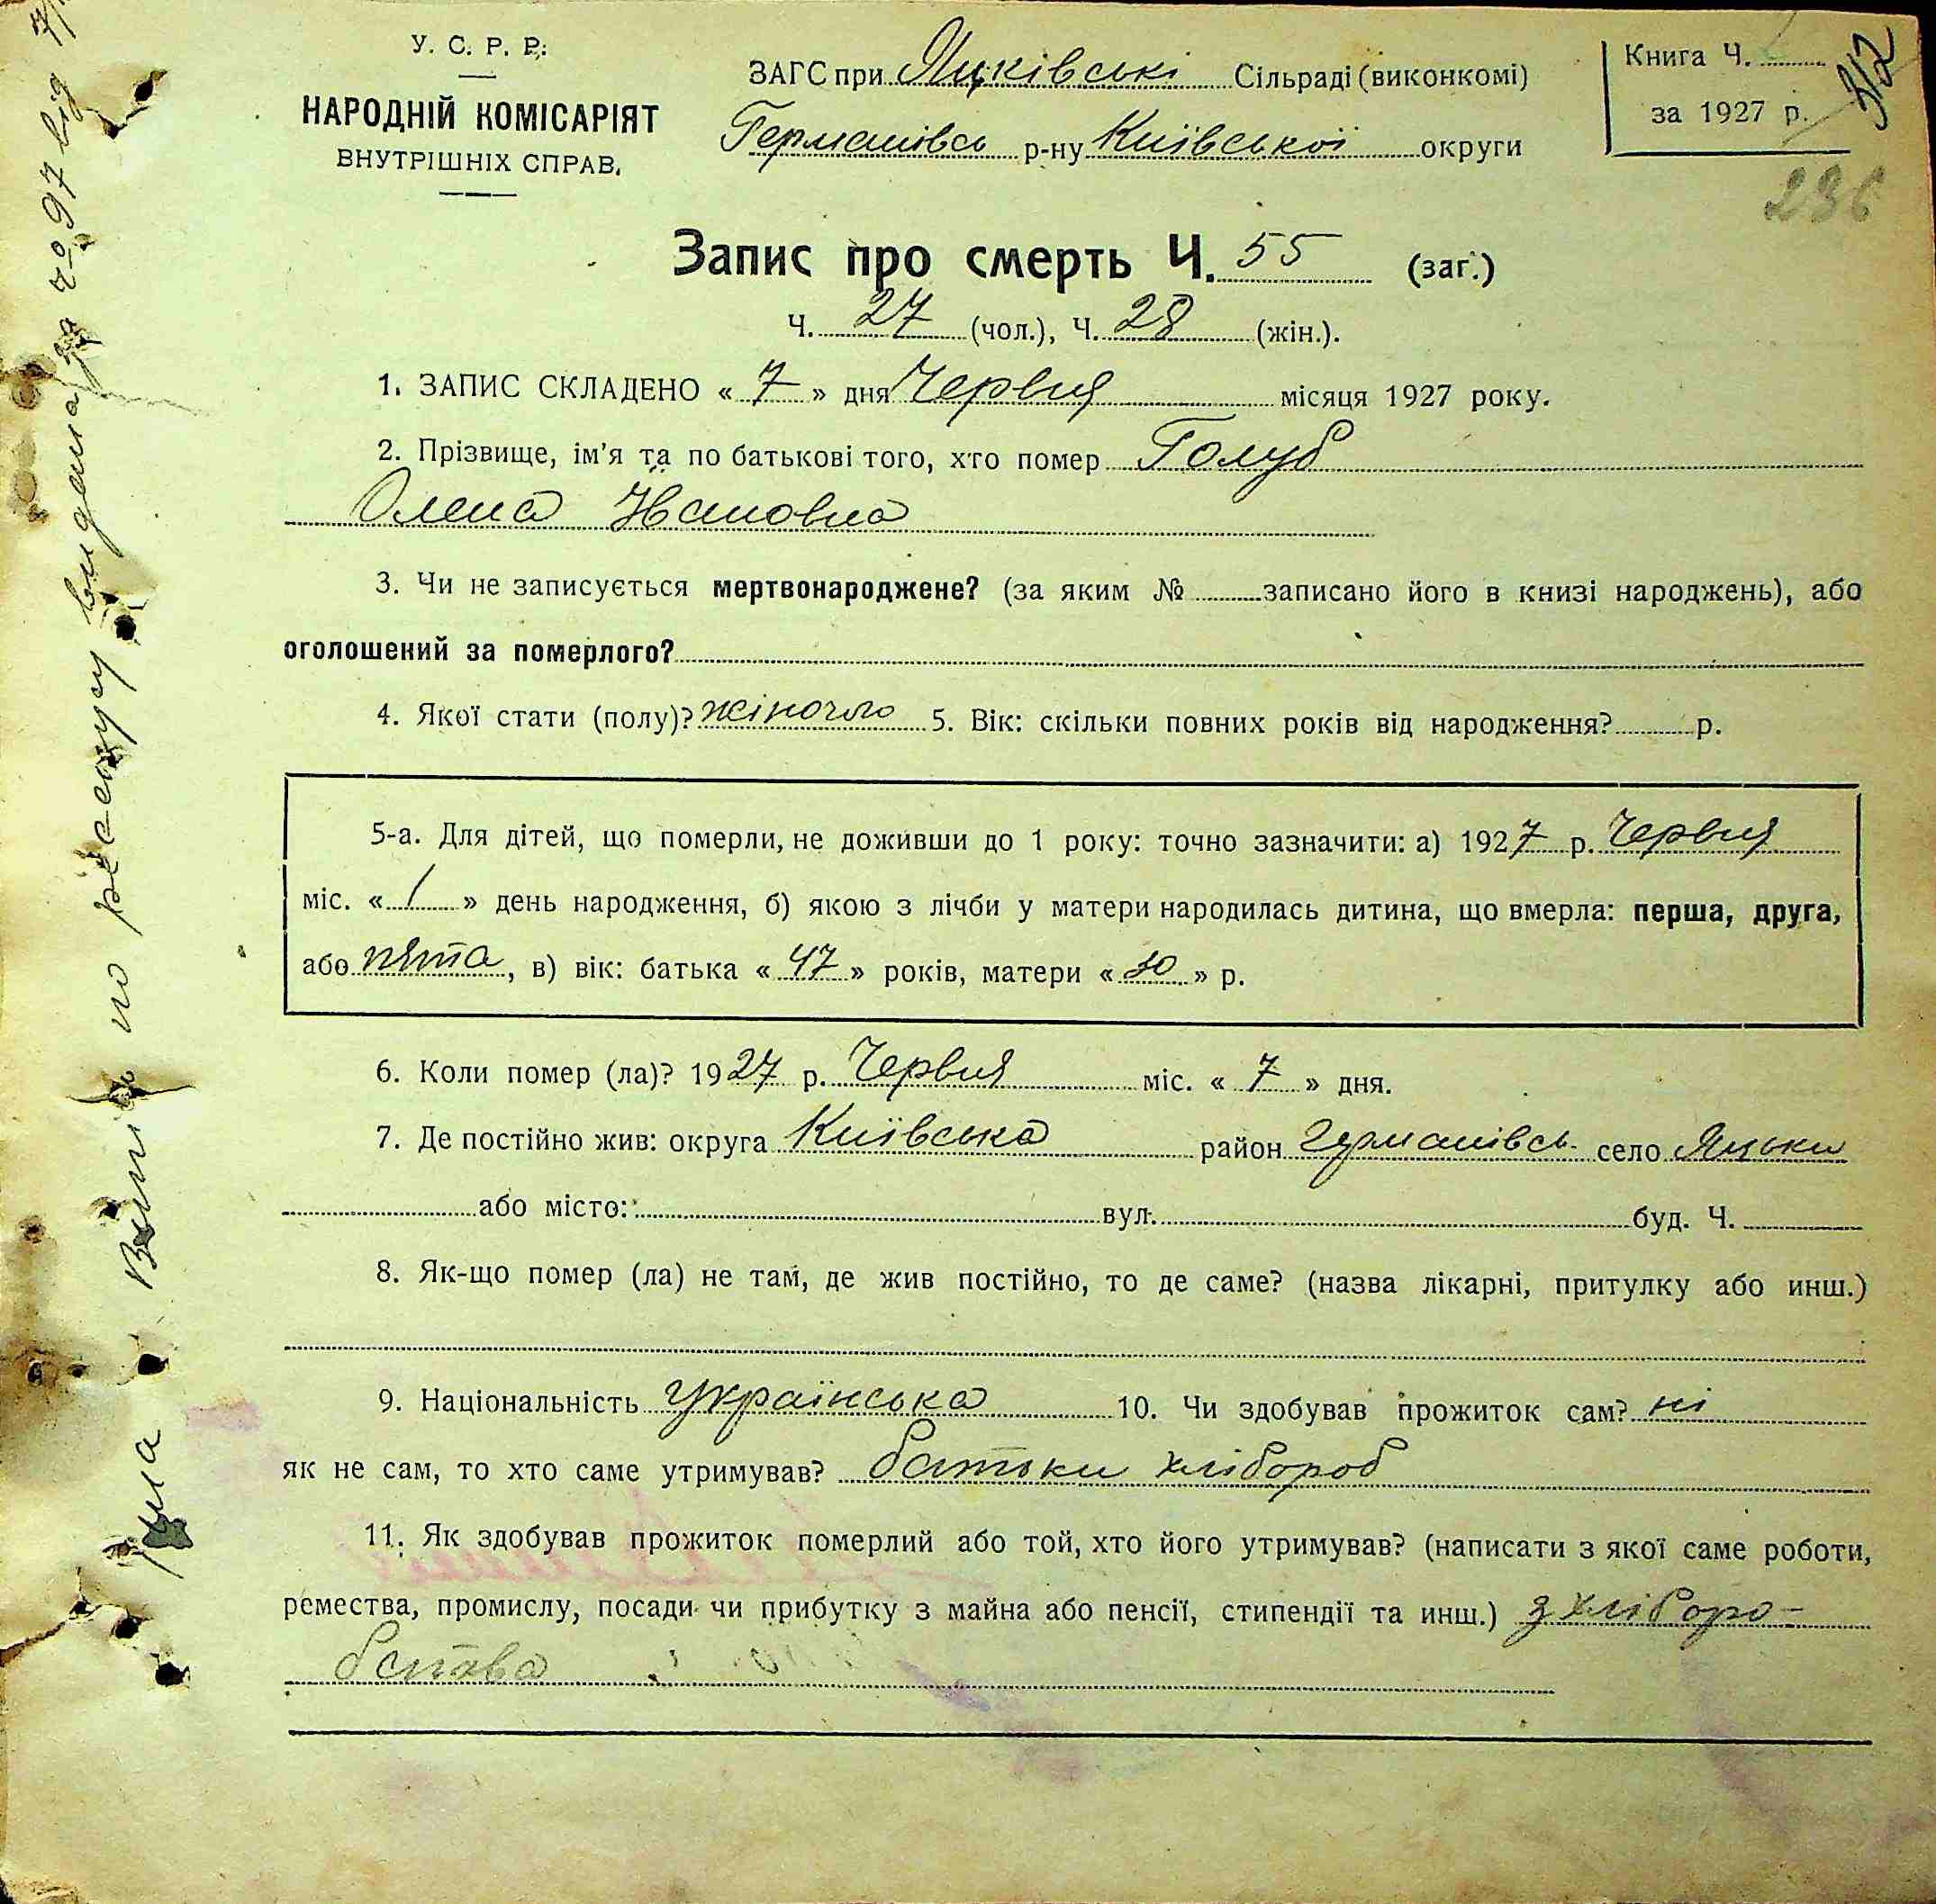 У. С. Р. Р.
НАРОДНІЙ КОМІСАРІЯТ
ВНУТРІШНІХ СПРАВ.
ЗАГС при Яцківські Сільраді (виконкомі)
Германівсь р-ну Київської округи
Книга Ч.
за 1927 р.
312
236
Запис про смерть Ч. 55 (заг.)
Ч. 27 (чол.), Ч. 28 (жін.).
1. ЗАПИС СКЛАДЕНО « 7 » дня Червня місяця 1927 року.
2. Прізвище, ім'я та по батькові того, хто помер Голуб
Олена Ивановна
3. Чи не записується мертвонароджене? (за яким № записано його в книзі народжень), або
оголошений за померлого?
4. Якої стати (полу)? жіночого 5. Вік: скільки повних років від народження? р.
5-а. Для дітей, що померли, не доживши до 1 року: точно зазначити: а) 1927 р. Червня
міс. « 1 » день народження, б) якою з лічби у матери народилась дитина, що вмерла: перша, друга,
або пята, в) вік: батька « 47 » років, матери « 30 » р.
6. Коли помер (ла)? 1927 р. Червня міс. « 7 » дня.
7. Де постійно жив: округа Київська район Германівсь село Яцьки
або місто: вул. буд. Ч.
8. Як-що помер (ла) не там, де жив постійно, то де саме? (назва лікарні, притулку або инш.)
9. Національність Українська 10. Чи здобував прожиток сам? ні
як не сам, то хто саме утримував? батьки хлібороб
11. Як здобував прожиток померлий або той, хто його утримував? (написати з якої саме роботи,
ремества, промислу, посади чи прибутку з майна або пенсії, стипендії та инш.) з хліборо-
бства
видана за № 97 від